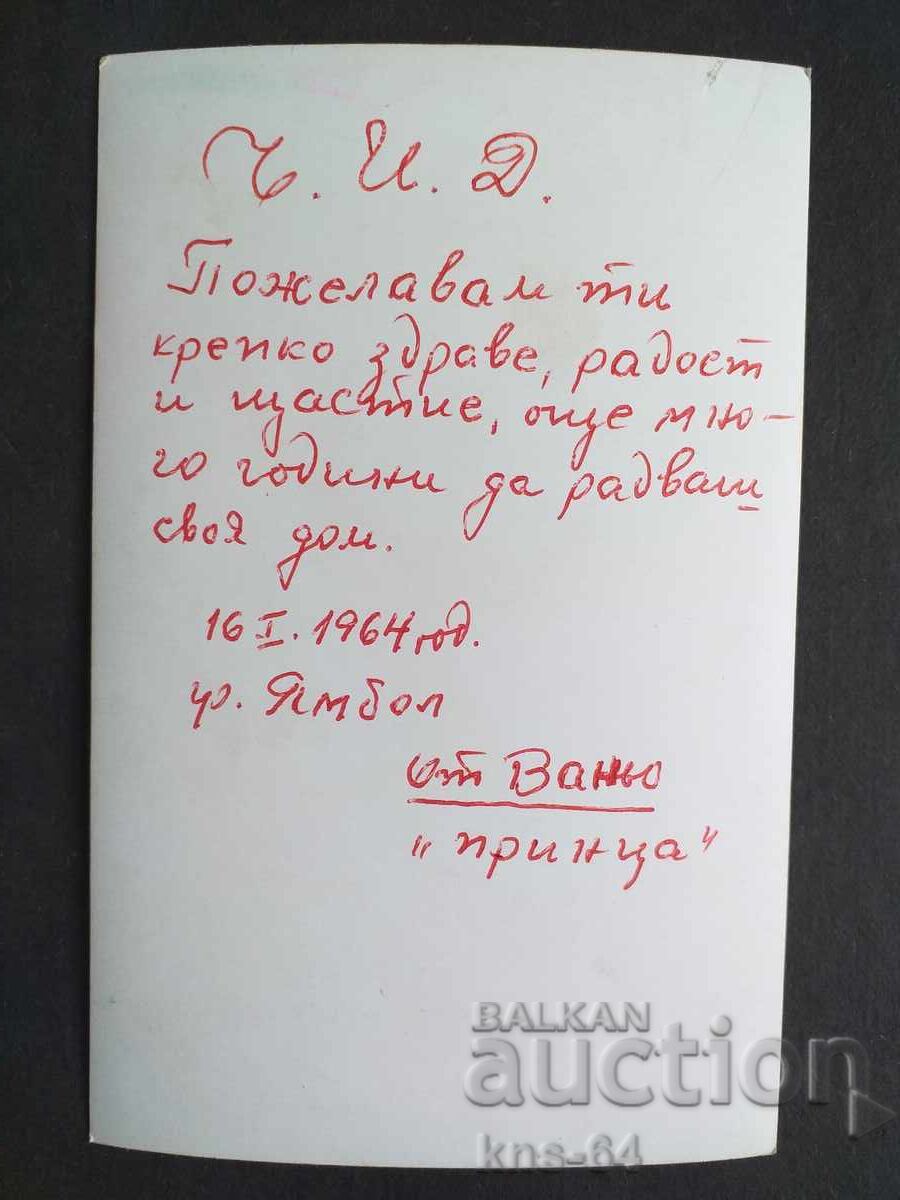 Ч. И. Д.
Пожелавам ти
крепко здраве, радост
и щастие, още мно-
го години да радваш
своя дом.
16 I. 1964 год.
гр. Ямбол
от Ваньо
„принца"
BALKAN
auction
kns-64